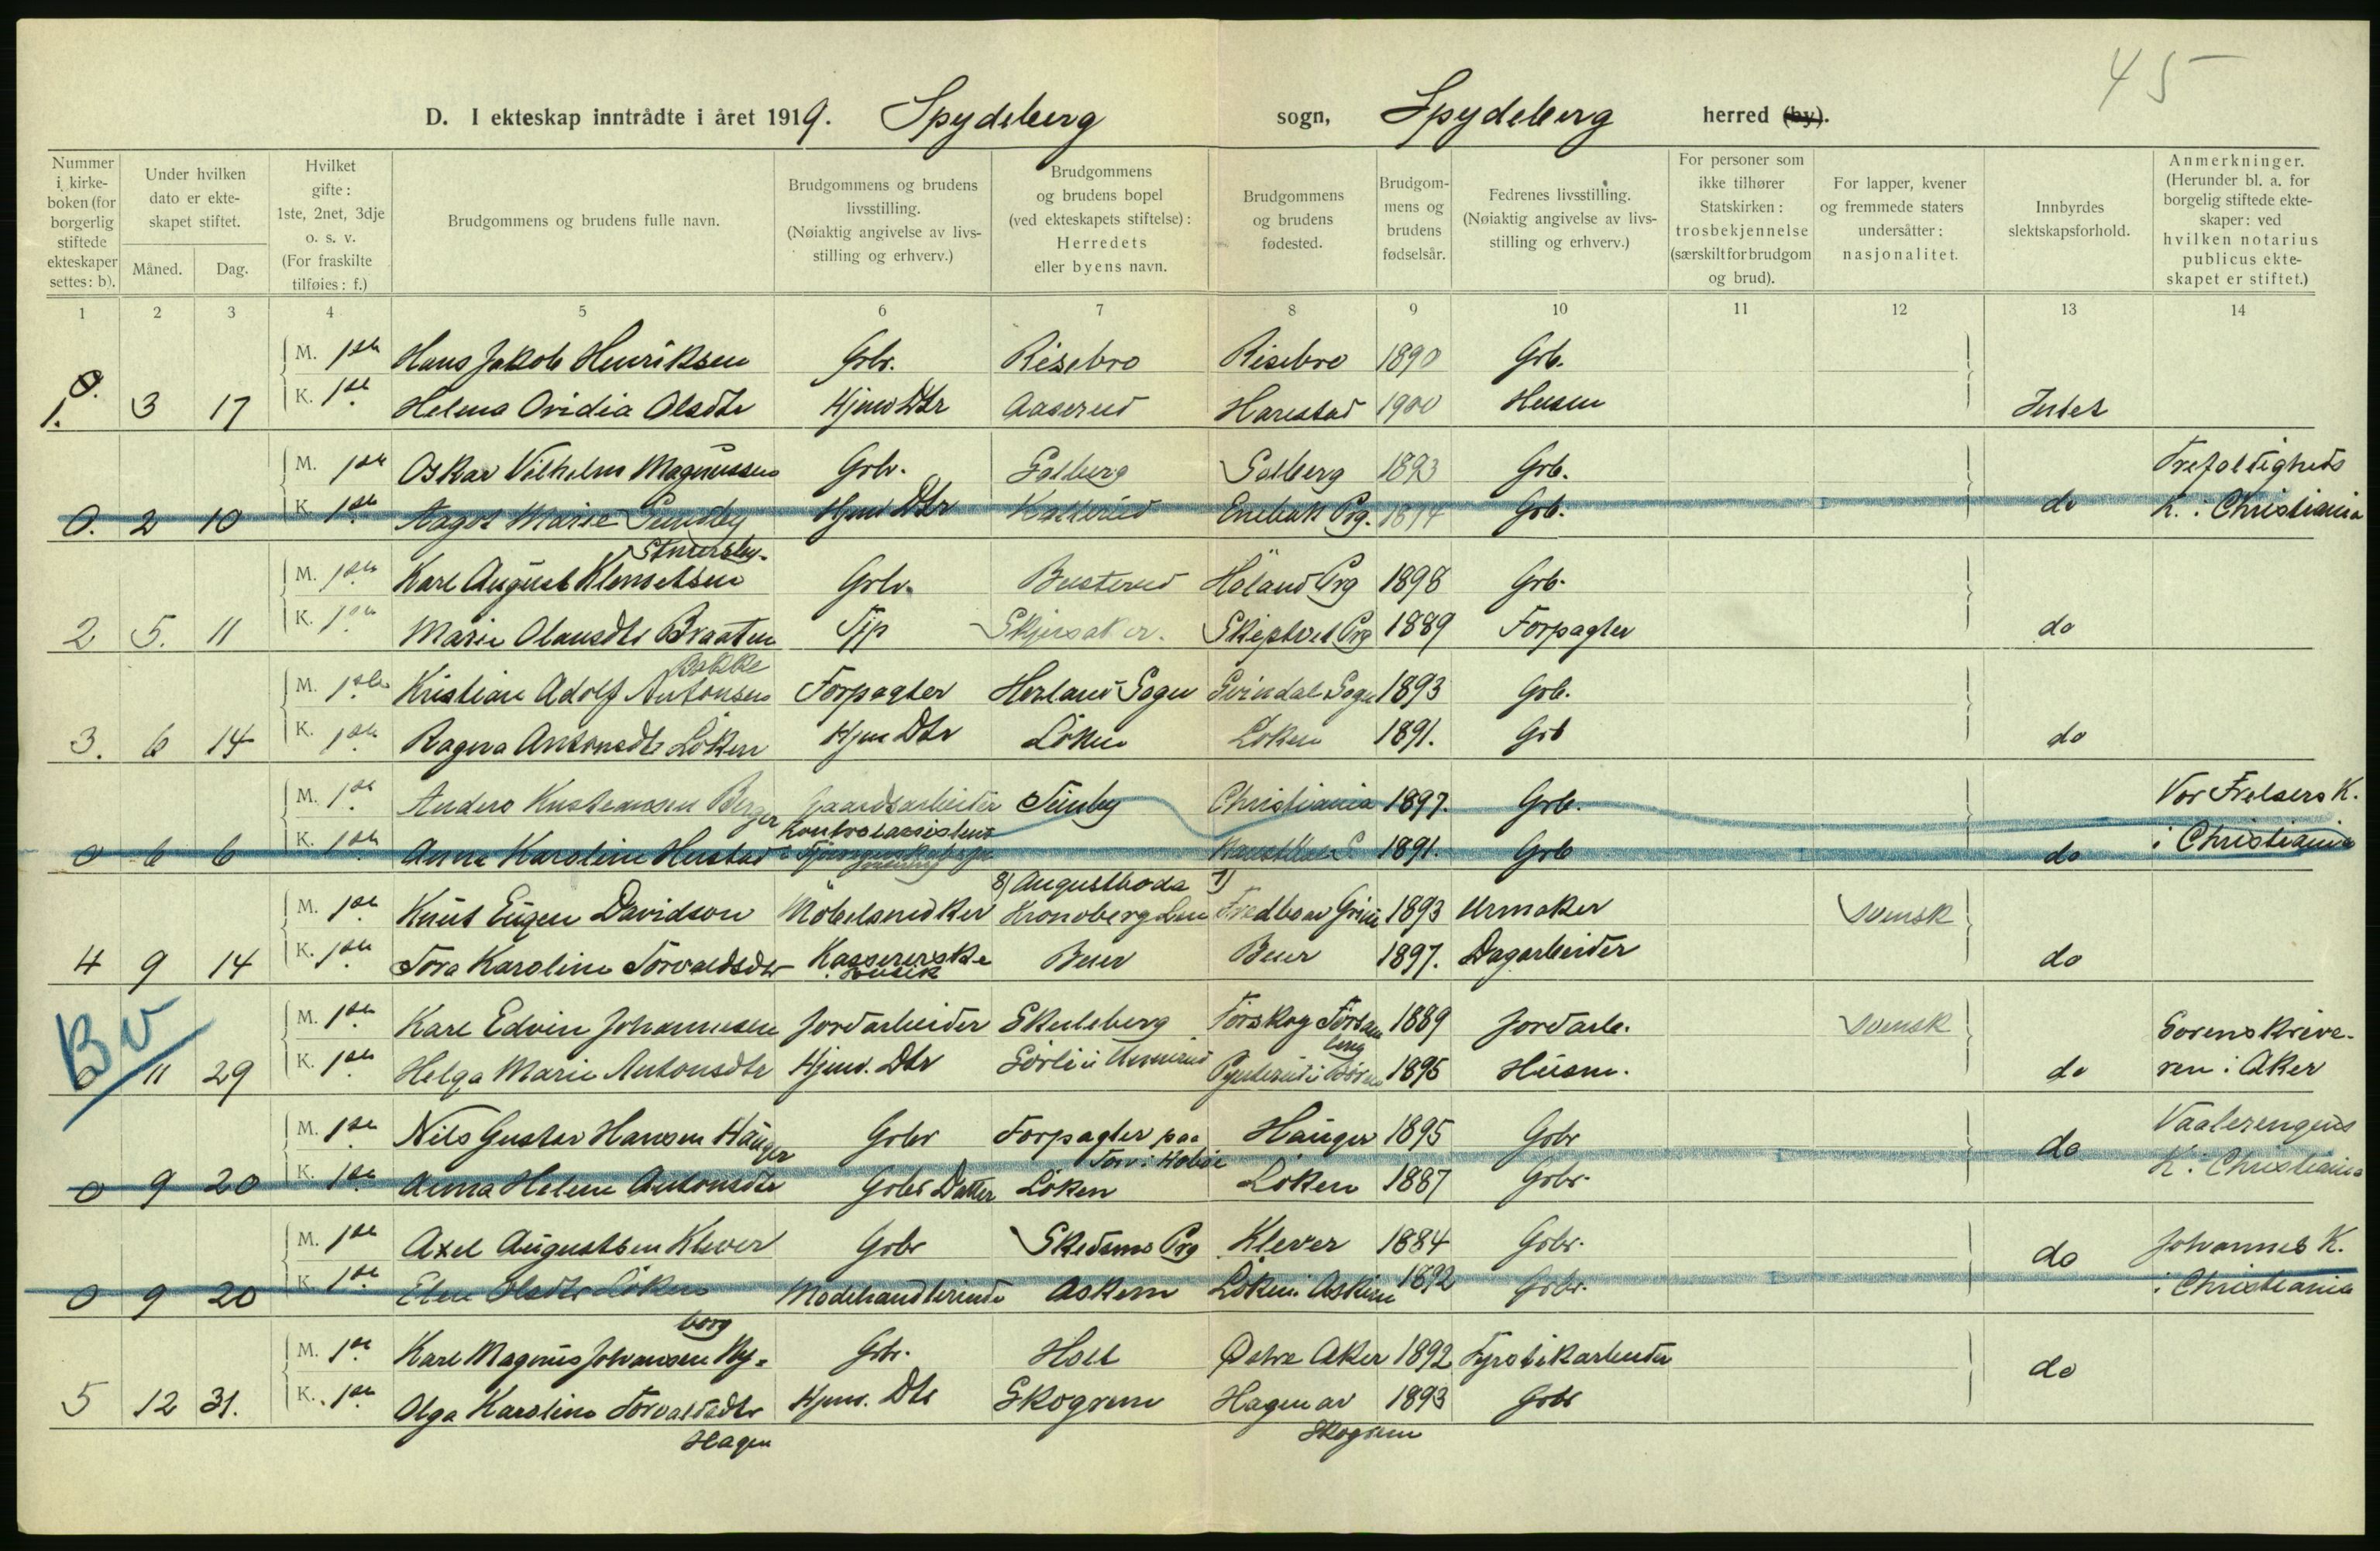 45
D. I ekteskap inntrådte i året 1919. Spydeberg sogn, Spydeberg herred (by).
Nummer i kirkeboken (for borgerlig stiftede ekteskaper settes: b).
Under hvilken dato er ekteskapet stiftet.
Måned. Dag.
Hvilket gifte: 1ste, 2net, 3dje o. s. v. (For fraskilte tilføies: f.)
Brudgommens og brudens fulle navn.
Brudgommens og brudens livsstilling. (Nøiaktig angivelse av livsstilling og erhverv.)
Brudgommens og brudens bopel (ved ekteskapets stiftelse): Herredets eller byens navn.
Brudgommens og brudens fødested.
Brudgommens og brudens fødselsår.
Fedrenes livsstilling. (Nøiaktig angivelse av livsstilling og erhverv.)
For personer som ikke tilhører Statskirken: trosbekjennelse (særskilt for brudgom og brud).
For lapper, kvener og fremmede staters undersåtter: nasjonalitet.
Innbyrdes slektskapsforhold.
Anmerkninger. (Herunder bl. a. for borgelig stiftede ekteskaper: ved hvilken notarius publicus ekteskapet er stiftet.)
1 2 3 4 5 6 7 8 9 10 11 12 13 14
M. 1ste Hans Jakob Henriksen Grbr. Risebro Risebro 1890 Grb.
1. 3 17 K. 1ste Helena Ovidia Olsdtr Hjmv Dtr Aaserud Harestad 1900 Husm Intet
M. 1ste Oskar Vilhelm Magnussen Grbr. Solberg Solberg 1893 Grb. Trefoldigheds
0. 2 10 K. 1ste Aagot Marie Sundby Hjmv Dtr Enebak Prg. Grb. do K. i Christiania
M. 1ste Karl August Klemetsen Grbr. Busterud Høland Prg 1898 Grb.
2 5. 11 K. 1ste Marie Olausdtr Braaten Tjp Skjersaker. Skiptvet Prg 1889 Forpagter do
Bakke
M. 1ste Kristian Adolf Antonsen Forpagter Herland Sogn Svindal Sogn 1893 Grb.
3. 6 14 K. 1ste Ragna Antonsdtr Löken Hjmv Dtr Löken Löken 1891. Grb do
M. 1ste Anders Kristiansen Berger Gaardsarbeider Christiania 1897. Grb. Vor Frelsers K.
0 6 6 K. 1ste Anna Karoline Hustad Kontrolassistent 1891. Grb do i Christiania
8) Augustboda 7)
M. 1ste Knut Eugen Davidson Möbelsnedker Kronoberg Len 1893 Urmaker svensk
4 9 14 K. 1ste Tora Karoline Torvaldsdtr Kassererske i butik Beuer Beuer 1897. Dagarbeider do
Bv
M. 1ste Karl Edvin Johannesen Jordarbeider Skuleberg Förskog Försam ling 1889 Jordarb. svensk Sorenskrive-
0 11 29 K. 1ste Helga Marie Antonsdtr Hjmv. Dtr 1895 Husm. do ren i Aker
M. 1ste Nils Gustav Hansen Hauger Grbr Forpagter paa Hauger 1895 Grbr do Vaalerengens
0 9 20 K. 1ste Anna Helene Antonsdtr Grbr Datter Löken Löken 1887 Grbr. K. i Christiania
M. 1ste Axel Augustsen Klever Grbr Skedsmo Prg Klever 1884 Grbr. do Johannes K.
0 9 20 K. 1ste Olsdtr Löken Modehandlerinde Askim Löken i Askim 1892 Grbr. i Christiania
borg
M. 1ste Karl Magnus Johansen Ny- Grbr. Holt Østre Aker 1892 do
5 12 31. K. 1ste Olga Karoline Torvaldsdtr Hjmv. Dtr Skogrum Hagen av 1893 Grbr
Hagen Skogrum